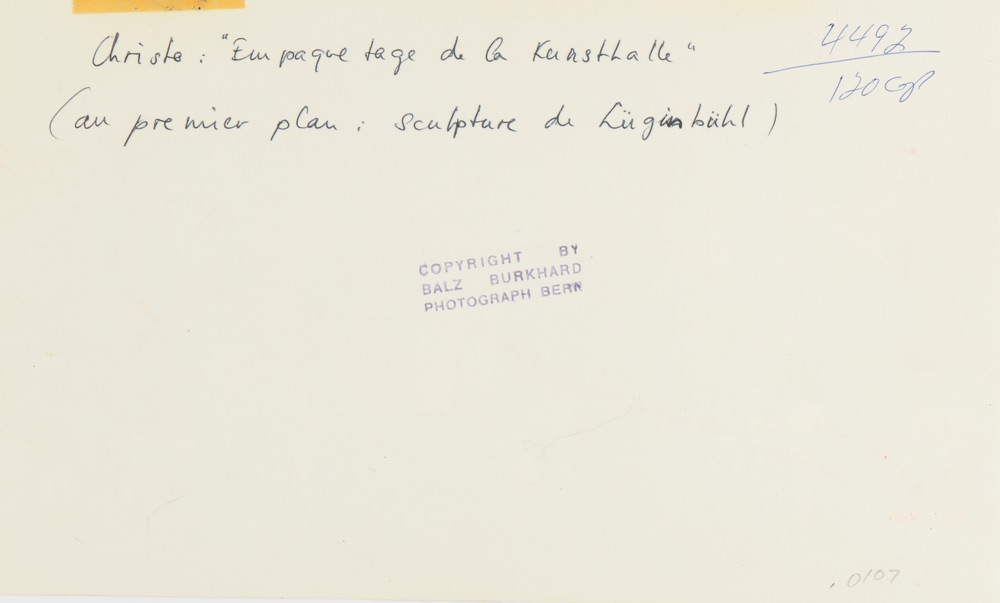 Christo : "Empaquetage de la Kunsthalle"
4492
(au premier plan : sculpture de Lüginbühl)
COPYRIGHT BY
BALZ BURKHARD
PHOTOGRAPH BERN
.0107